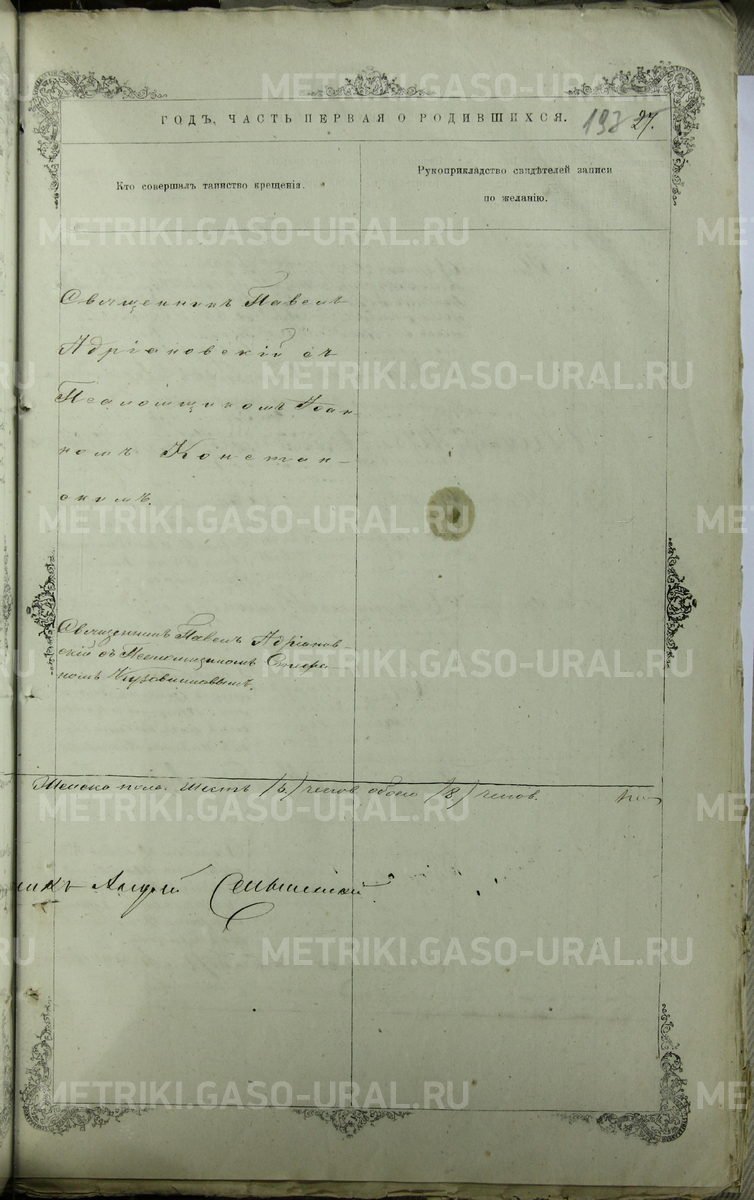 METRIKI.GASO-URAL.RU
ГОДЪ, ЧАСТЬ ПЕРВАЯ О РОДИВШИХСЯ.
27.
Кто совершалъ таинство крещенія.
Рукоприкладство свидѣтелей записи
по желанію.
Священникъ Павелъ
Адріановскій съ
Псаломщикомъ Іоан
номъ Констан-
скимъ.
Священникъ Павелъ Адріанов-
скій съ Псаломщикомъ Стефа
номъ
Женска пола шесть /6/ челов. обоего /8/ челов.